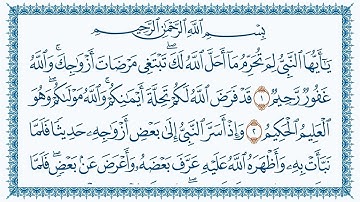 بِسْمِ ٱللَّهِ ٱلرَّحْمَٰنِ ٱلرَّحِيمِ
يَٰٓأَيُّهَا ٱلنَّبِىُّ لِمَ تُحَرِّمُ مَآ أَحَلَّ ٱللَّهُ لَكَ ۖ تَبْتَغِى مَرْضَاتَ أَزْوَٰجِكَ ۚ وَٱللَّهُ
غَفُورٌ رَّحِيمٌ ١ قَدْ فَرَضَ ٱللَّهُ لَكُمْ تَحِلَّةَ أَيْمَٰنِكُمْ ۚ وَٱللَّهُ مَوْلَىٰكُمْ ۖ وَهُوَ
ٱلْعَلِيمُ ٱلْحَكِيمُ ٢ وَإِذْ أَسَرَّ ٱلنَّبِىُّ إِلَىٰ بَعْضِ أَزْوَٰجِهِۦ حَدِيثًا فَلَمَّا
نَبَّأَتْ بِهِۦ وَأَظْهَرَهُ ٱللَّهُ عَلَيْهِ عَرَّفَ بَعْضَهُۥ وَأَعْرَضَ عَنۢ بَعْضٍ ۖ فَلَمَّا